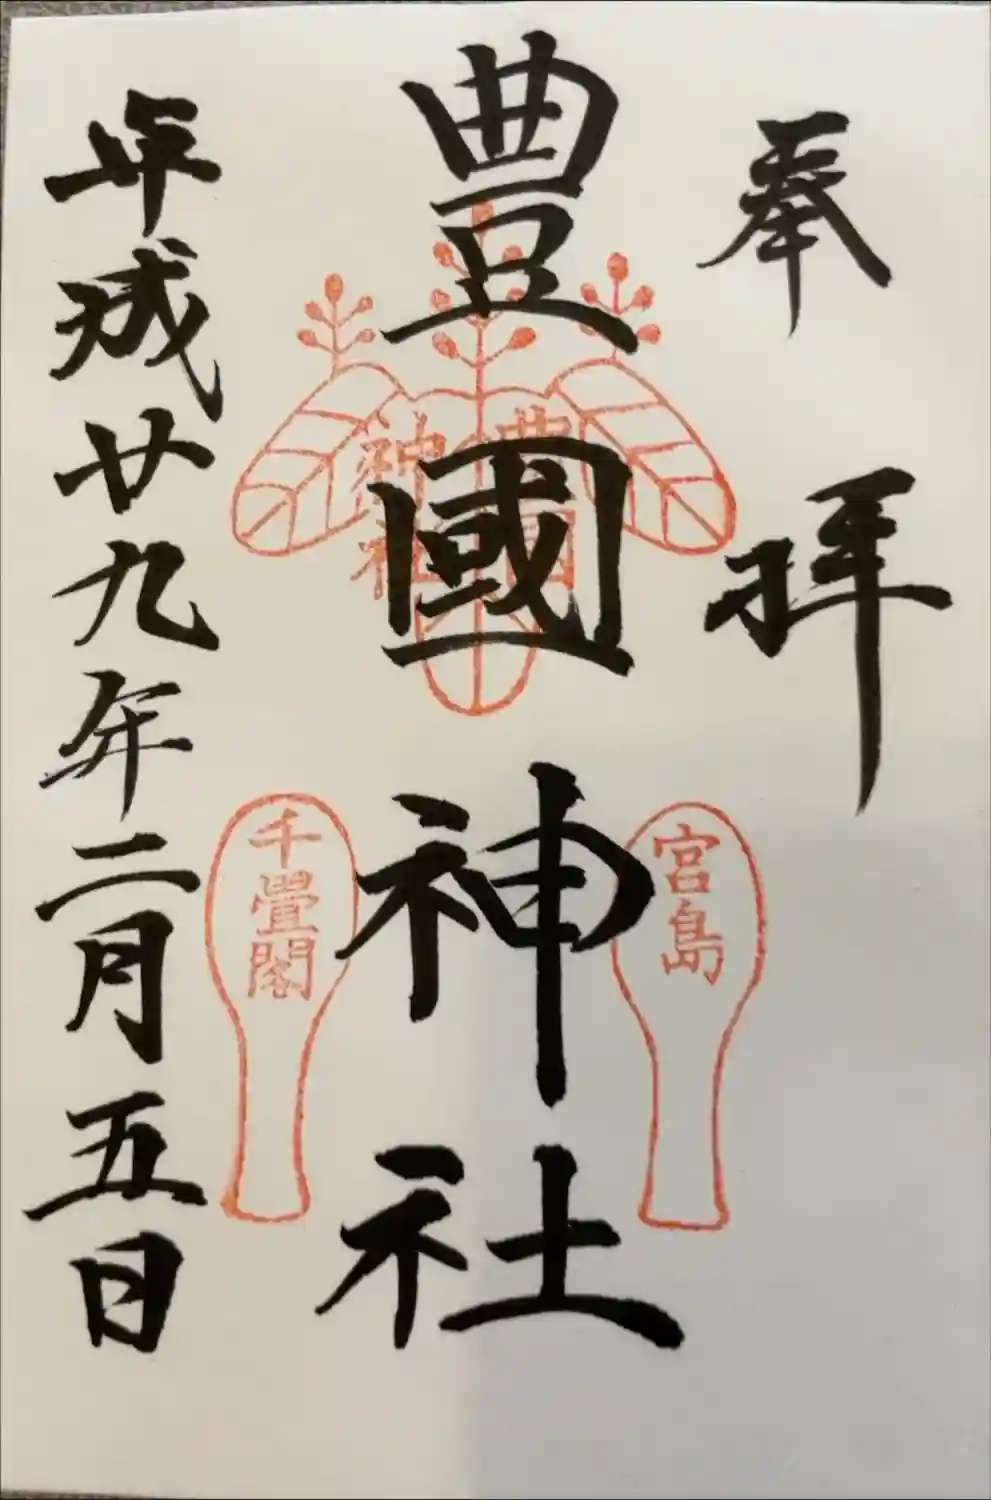 奉拝
宮島
豊國神社
豊國
神社
千畳閣
平成廿九年二月五日